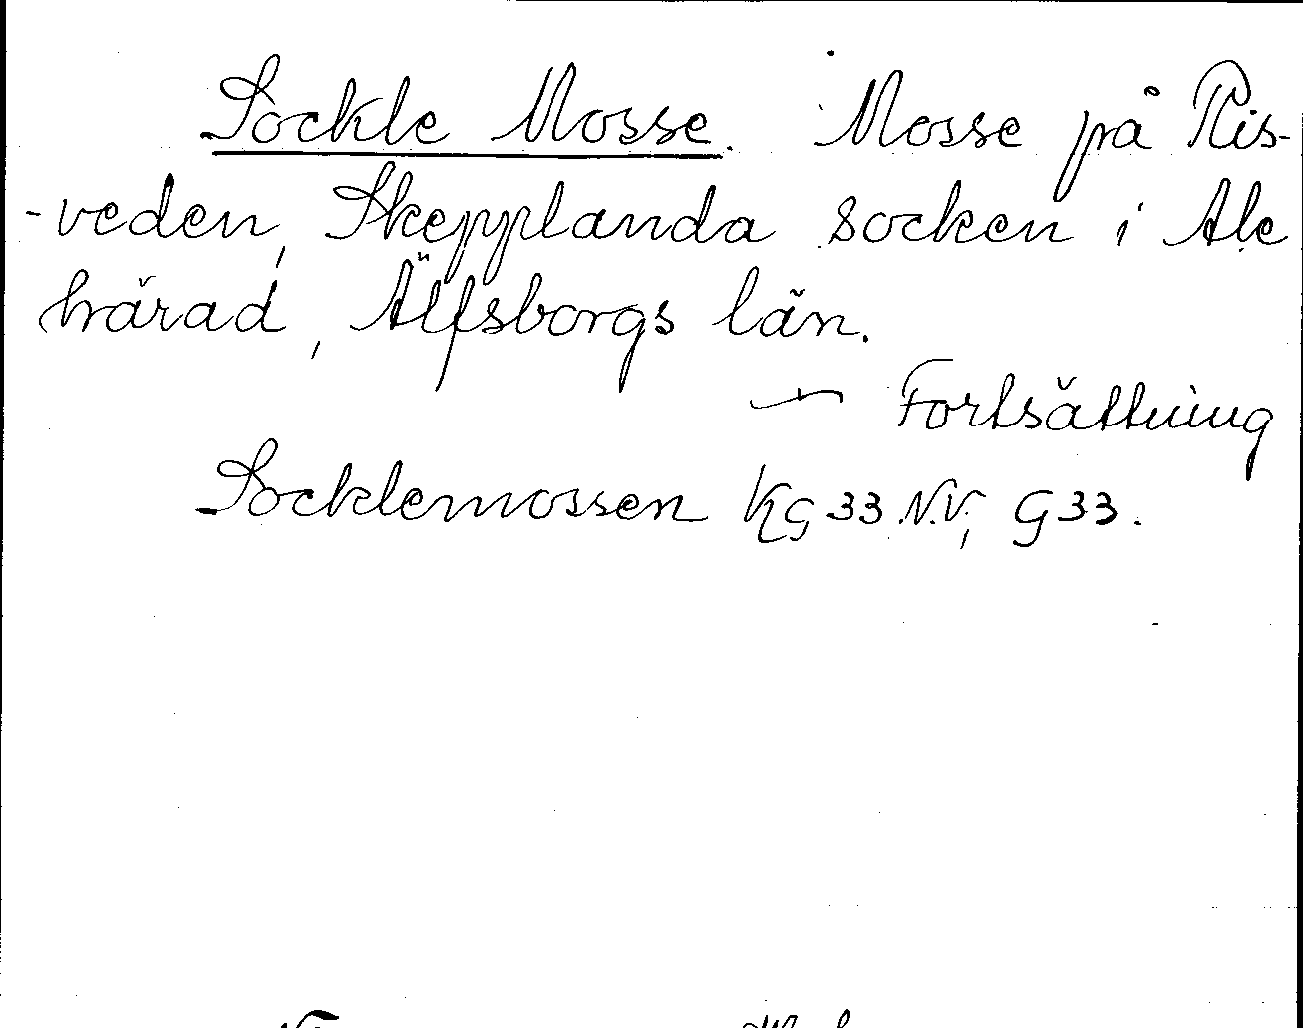 Sockle Mosse. Mosse på Ris-
-veden, Skepplanda socken i Ale
härad, Älfsborgs län.
~ Fortsättning
Socklemossen KG 33 N.V, G 33.